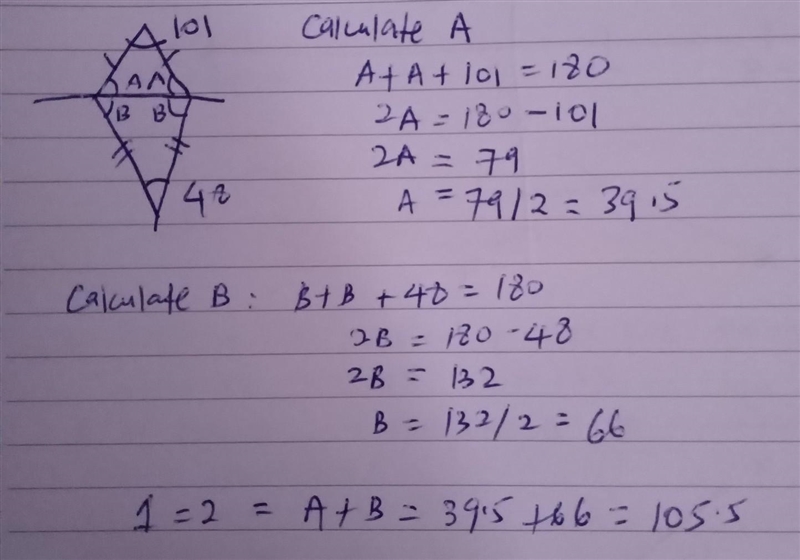 101 Calculate A
A A A + A + 101 = 180
B B 2A = 180 - 101
2A = 79
48 A = 79/2 = 39.5
Calculate B : B + B + 48 = 180
2B = 180 - 48
2B = 132
B = 132/2 = 66
1 = 2 = A + B = 39.5 + 66 = 105.5